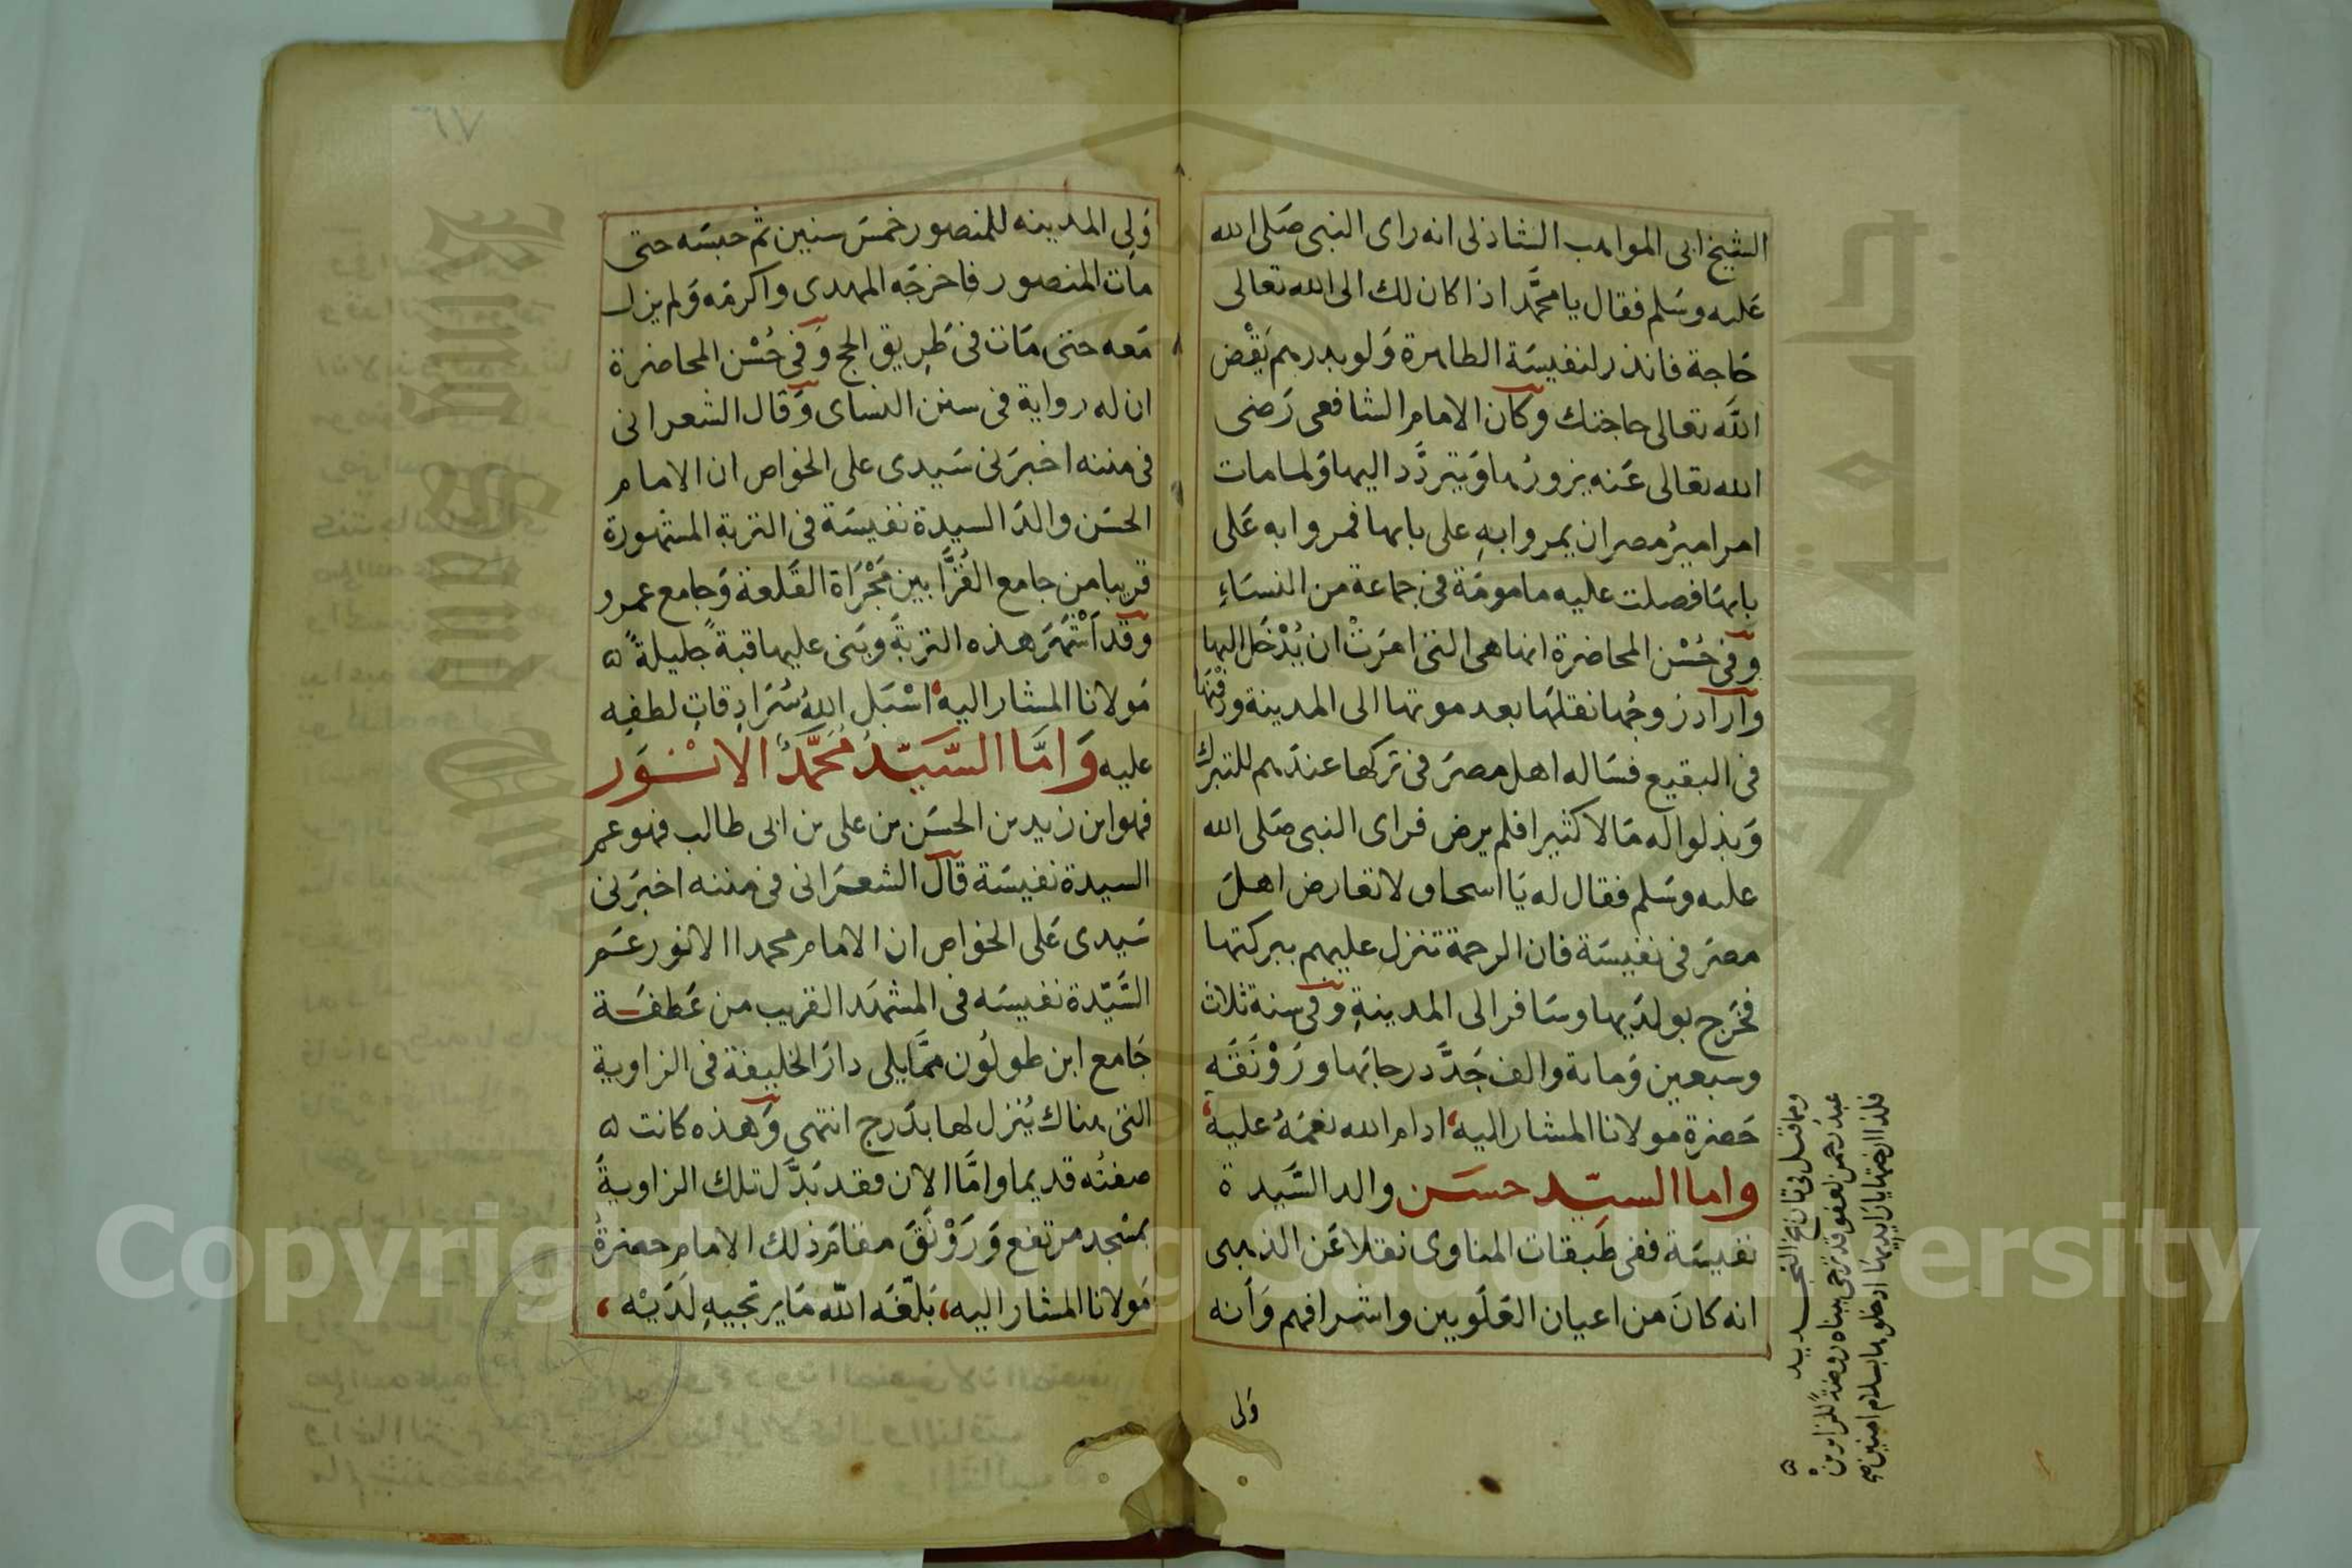 الشيخ ابى المواهب الشاذلى انه راى النبى صَلى الله
عَليه وسَلم فقال يا محمَّد اذا كان لك الى الله تعالى
حَاجة فانذر لنفيسَة الطاهرة وَلو بدرهم يَقْض
اللَّه تعالى حاجتك وكان الامام الشافعى رَضى
الله تعالى عَنه يزورُها وَيتردَّد اليها وَلما مات
امر اميرُ مصر ان يمروا بهِ على بابها فمروا به عَلى
بابها فصلت عليه مامومَة فى جماعة من النسَاءِ
وفى حُسْن المحاضرة انها هى التى امرَتْ ان يُدْخَل اليها
واراد زوجُها نقلهَا بعد موتها الى المدينة ودَفنَها
فى البقيع فسَاله اهل مصرَ فى تركها عندَهم للتبرك
وَبذلوا له مَالا كثيرا فلم يرض فراى النبى صَلى الله
عليه وسَلم فقال له يَا اسحاق لا تعارض اهلَ
مصرَ فى نفيسَة فان الرحمة تنزل عليهم ببركتها
فخَرج بولدَيها وسَافر الى المدينةِ وفى سنة ثلاث
وسبعين وَماىة والف جَدَّد رحابَها ورَوْنَقَه
حَضرة مولانا المشار اليه ادام الله نعمَهُ عليه
واما السيّد حسَن والد السَّيدة
نفيسَة ففى طَبقات المناوى نقلا عَن الذهبى
انه كانَ من اعيان العَلَويين واشرافهم وَاَنه
وَلى
ومما قيل فى تاريخ التجديد
عبد رحمن لعفو قد ترجى ببناه روضة للزايرين
فلذا ارختها يا زايريها ادخلوها بسلام امنين
وَلِى المدينه للمنصور خمسَ سنين ثم حبسَه حتى
مات المنصور فاخرجَه المهدى واكرمَه وَلم يزل
مَعه حتى مَات فى طَرِيق الحج وَفى حُسْن المحاضرة
ان له رواية فى سنن النساى وَقال الشعرانى
فى مننه اخبرَنى سَيدى على الخواص ان الامام
الحسَن والدَ السيدة نفيسَة فى التربة المشهورة
قريبا من جامع القُرَّا بين مَجْرَاة القَلعة وَجامع عمرو
وقد اَشْتهَرَ هذه التربةَ وبَنى عليها قبةً جليلةً
مَولانا المشار اليه اسْبَل اللهُ سُرَادِقاتِ لطفِه
عليه وَامَّا السَّيّدُ مُحَمَّدُ الانْوَر
فهو ابن زيد بن الحسَن بن على بن ابى طالب فهو عم
السيدة نفيسَة قال الشعرَانى فى مننه اخبرَنى
سَيدى عَلى الخواص ان الامام محمدا الانور عَم
السَّيّدة نفيسَه فى المشهَد القريب من عَطفَة
جَامع ابن طولُون ممَّا يلى دارَ الخليفة فى الزاوية
التى هناك يُنزل لها بدَرج انتهى وَهذه كانت
صفتُه قديما وامَّا الان فقد بَدَّل تلك الزاويةَ
بمسَجد مرتفع وَرَوْنَقَ مقامَ ذلك الامام حضرَةُ
مَولانا المشار اليه، بَلّغَه اللّه مَا يرتجيهِ لَدَيْه،
Copyright © King Saud University